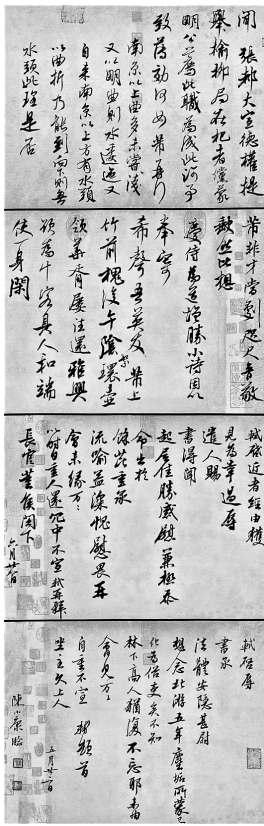 聞張都大宣德權提
舉榆柳局在杞者儻蒙
明公薦此職為成此河事
致薦勛何如芾再行
南京以上曲多未嘗淺
又以明曲則水逶迤又
自來南京以上方有水頭
以曲折乃能到向下則無
水頭此理是否
芾非才當劇咫尺音敬
缺然比想
慶侍為道增勝小詩因以
奉寄
希聲吾英友芾上
竹前槐後午陰繁壺
領華胥屢往還雅興
欲為十客具人和端
使一身閑
軾啟近者經由獲
見為幸過辱
遣人賜
書得聞
起居佳勝感慰兼極忝
命出於
餘芘重承
流喻益深愧慰畏再
會未緣萬萬
以時自重人還冗中不宣軾再拜
長官董侯閣下
六月廿八日
軾啟辱
書承
法體安隱甚慰
想念北游五年塵垢所蒙已
化為俗吏矣不知
林下高人猶復不忘耶未由
會見萬萬
自重不宣軾頓首
坐主久上人
五月廿二日